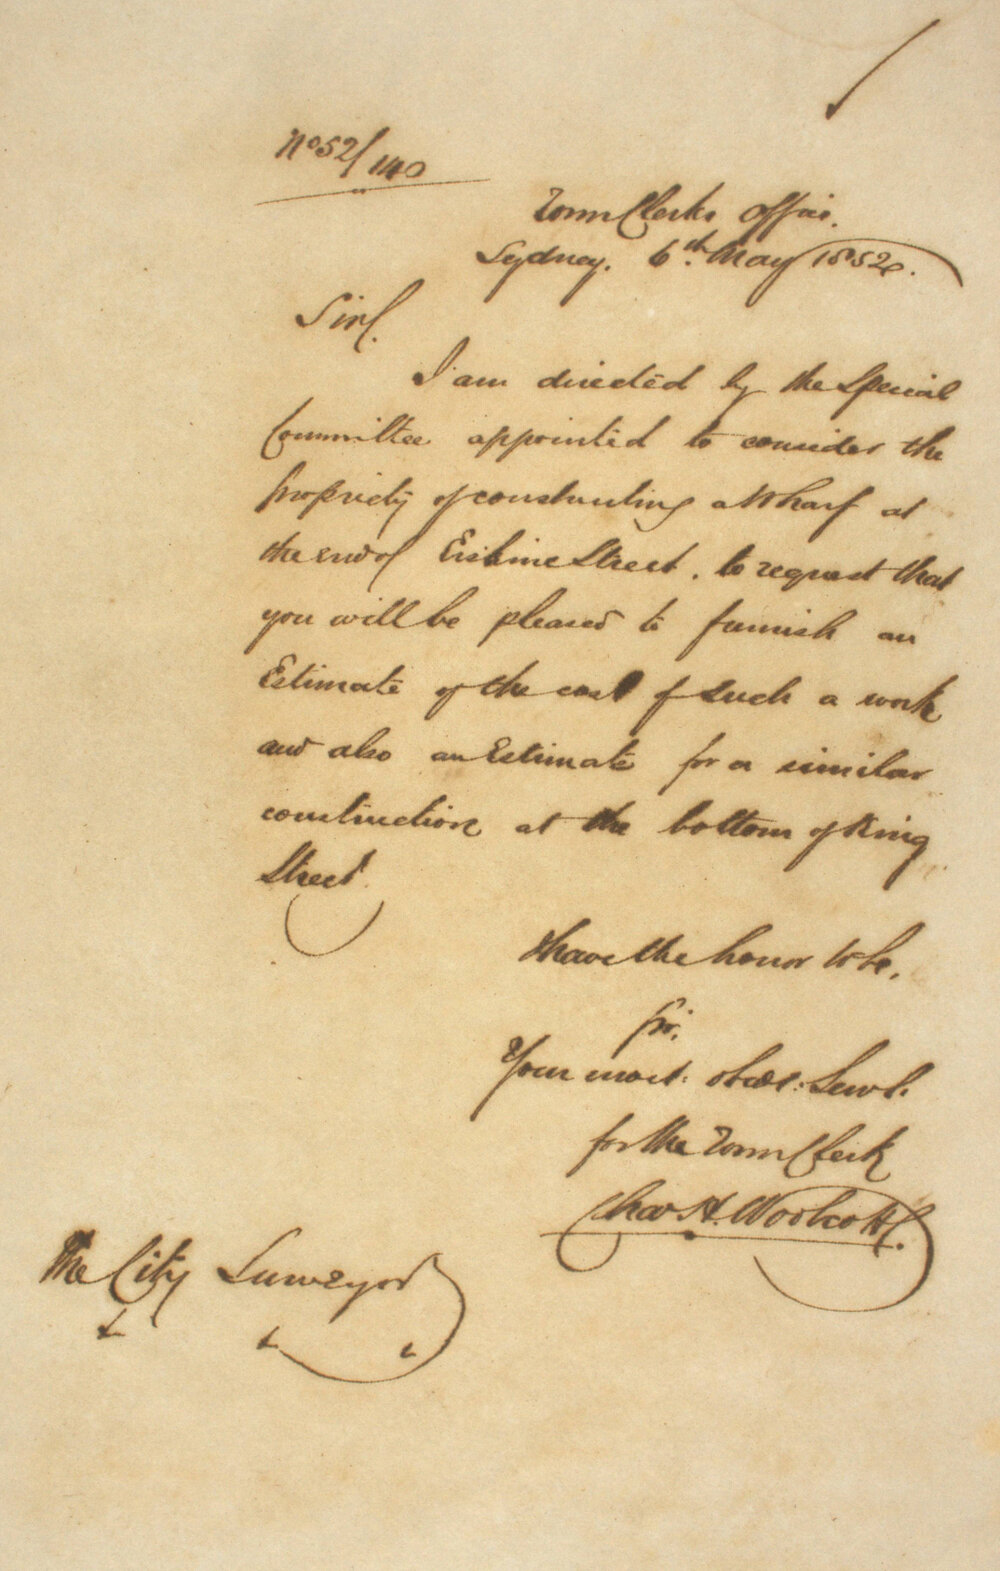 No 52/140
Town Clerks Office.
Sydney. 6th May 1852.
Sir,
I am directed by the Special
Committee appointed to consider the
propriety of constructing a Wharf at
the end of Erskine Street, to request that
you will be pleased to furnish an
Estimate of the cost of such a work
and also an Estimate for a similar
construction at the bottom of King
Street.
I have the honor to be,
Sir,
Your most: obedt: Servt.
for the Town Clerk
Chas H. Woolcott.
The City Surveyor